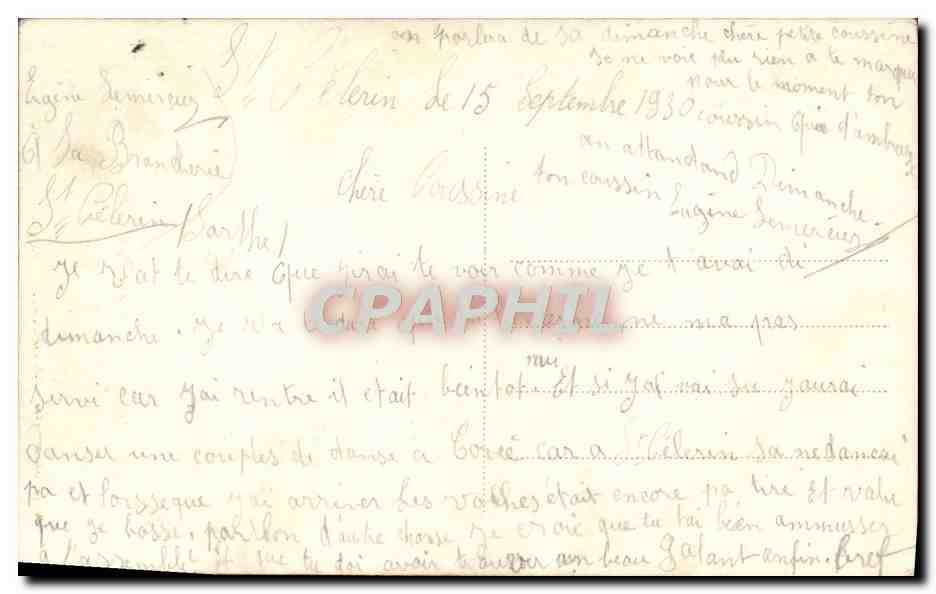 on parlera de sa dimanche chère petite coussine
je ne voie plu rien a te marquer
pour le moment ton
coussin Que d'ambrasse
an attandand Dimanche.
ton coussin
Eugène Lemercier
Eugène Lemercier
à La Branderie
St Célerin
(Sarthe)
St Célerin Le 15 Septembre 1930
Chère Coussine
Je te dire Que j'irai te voir comme je t'avai di
dimanche. Je ne ma pas
servi car j'ai rentre il était beintot nui. Et si j'avai su j'aurai
danser une couples de danse a Torcé car a St Célerin sa ne dancai
pa et lorsseque j'ai arriver Les vaches était encore pa tiré Et
que je bosse, parllon d'autre chosse je croie que tu tai bien ammusser
a l'assemblé Et que tu doi avoir trouver un beau Galant enfin. Bref
CPAPHIL